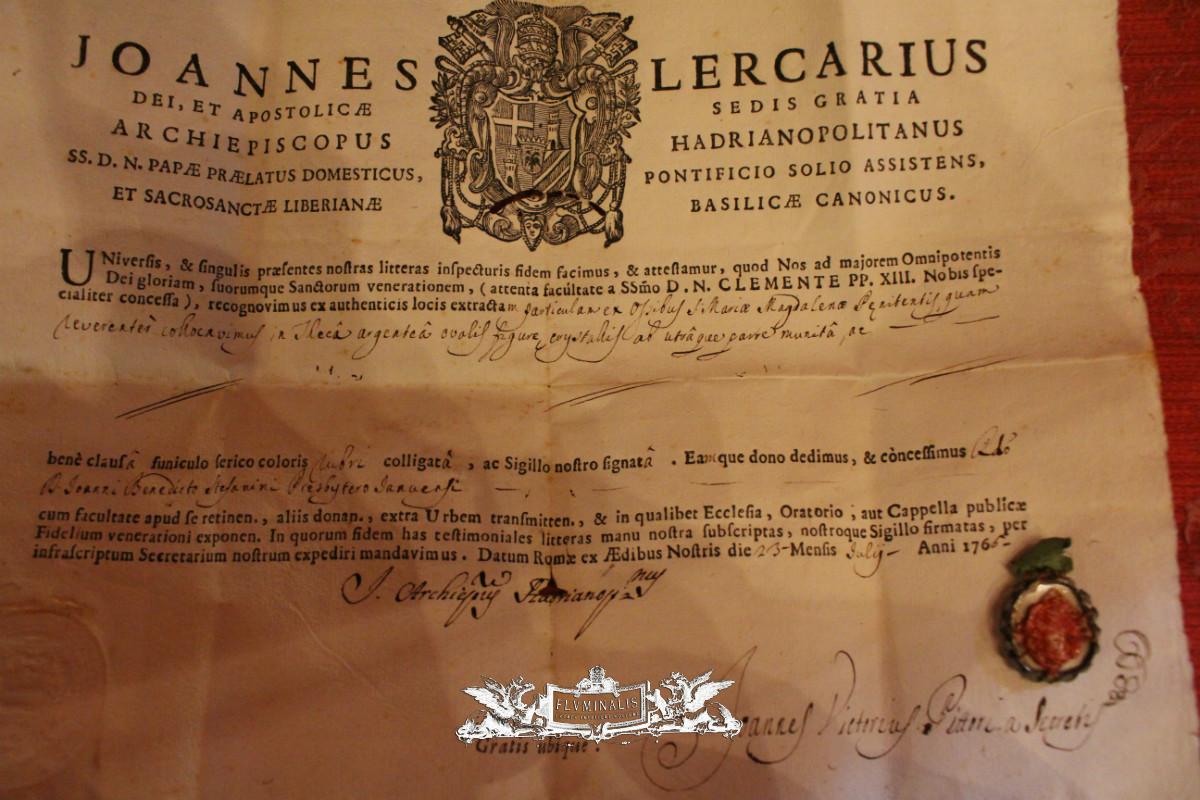 JOANNES LERCARIUS
DEI, ET APOSTOLICÆ SEDIS GRATIA
ARCHIEPISCOPUS HADRIANOPOLITANUS
SS. D. N. PAPÆ PRÆLATUS DOMESTICUS, PONTIFICIO SOLIO ASSISTENS,
ET SACROSANCTÆ LIBERIANÆ BASILICÆ CANONICUS.
UNiversis, & singulis præsentes nostras litteras inspecturis fidem facimus, & attestamur, quod Nos ad majorem Omnipotentis
Dei gloriam, suorumque Sanctorum venerationem, (attenta facultate a SSmo D. N. CLEMENTE PP. XIII. Nobis spe-
cialiter concessa), recognovimus ex authenticis locis extractam particulam ex Ossibus S. Mariæ Magdalenæ Penitentis quam
reverenter collocavimus in Thecâ argenteâ ovalis figuræ, crystallis ab utrâque parte munitâ, ac
benè clausâ funiculo serico coloris rubri colligatâ, ac Sigillo nostro signatâ. Eamque dono dedimus, & còncessimus
D. Joanni Benedicto Stefanini Presbytero Januensi
cum facultate apud se retinen., aliis donan., extra Urbem transmitten., & in qualibet Ecclesia, Oratorio, aut Cappella publicæ
Fidelium venerationi exponen. In quorum fidem has testimoniales litteras manu nostra subscriptas, nostroque Sigillo firmatas, per
infrascriptum Secretarium nostrum expediri mandavimus. Datum Romæ ex Ædibus Nostris die 23 Mensis Julij Anni 176
J. Archiepus Hadrianopnus
FLVMINALIS
Gratis ubique.
Joannes Victorius Pittori a Secretis